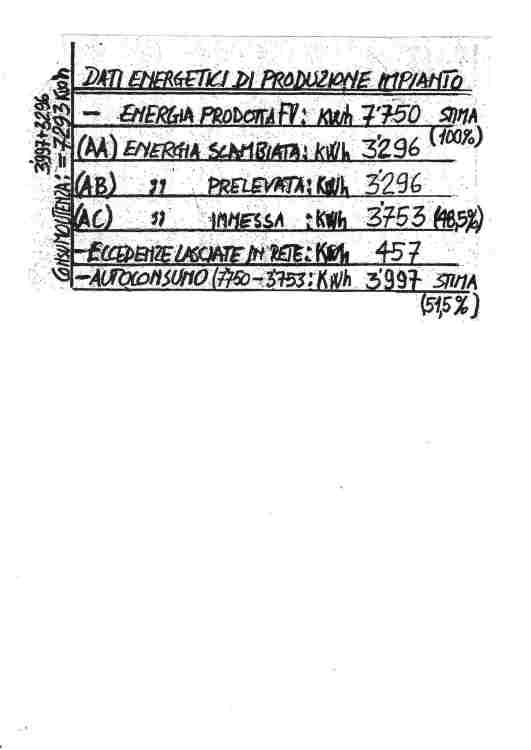 DATI ENERGETICI DI PRODUZIONE IMPIANTO
— ENERGIA PRODOTTA FV: KWh 7'750 STIMA
(100%)
(AA) ENERGIA SCAMBIATA: KWh 3'296
(AB) " PRELEVATA: KWh 3'296
(AC) " IMMESSA : KWh 3'753 (48,5%)
— ECCEDENZE LASCIATE IN RETE: KWh 457
— AUTOCONSUMO (7750-3'753: KWh 3'997 STIMA
(51,5%)
3997+3296
CONSUMO UTENZA: = 7293 KWh